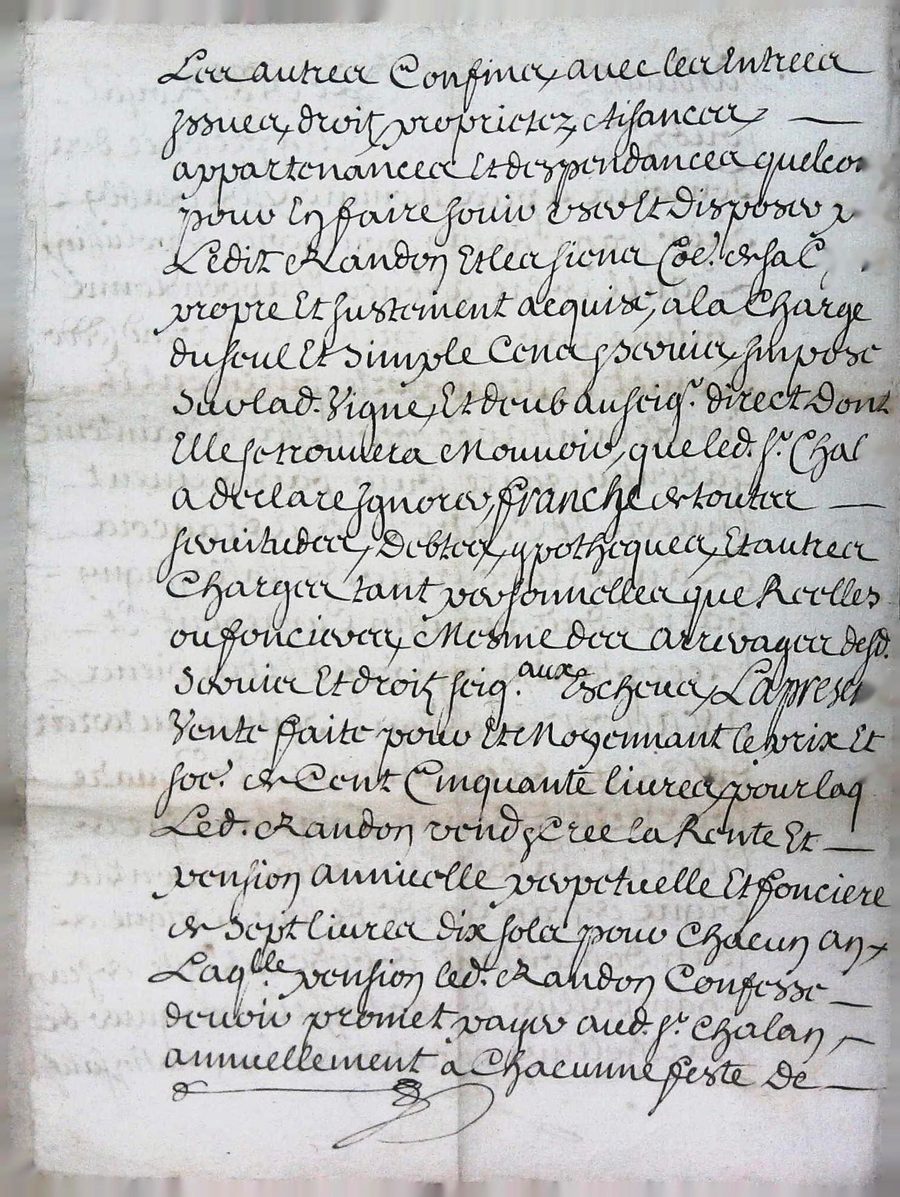 Les autres Confins, avec les Entrees
Issues, droitz, proprietez, Aisances, —
appartenances Et despendances quelco
pour En faire Jouir user Et Disposer p
Ledit Randon Et les siens Coe. de sa C
propre Et Justement acquise, a la Charge
du seul Et Simple Cens, Servis, Impose
Sur lad. Vigne, Et deub au seigr. direct Dont
Elle se trouvera Mouvoir, que led. Sr. Chal
a declare Ignorer, franche de toutes —
servitudes, Debtes, ypotheques, Et autres
Charges tant personnelles que Reelles
ou foncieres, Mesme des arrerages desd.
Servis Et droitz seig.aux Escheus, La prese
Vente faite pour Et Moyennant le prix Et
so.e de Cent Cinquante livres, pour laq
Led. Randon vend, Cree la Rente Et —
pension annuelle perpetuelle Et fonciere
de Sept livres dix sols pour Chacun an,
Laq.lle pension led. Randon Confesse —
devoir promet payer aud. Sr. Chalan, —
annuellement à Chacunne feste De —